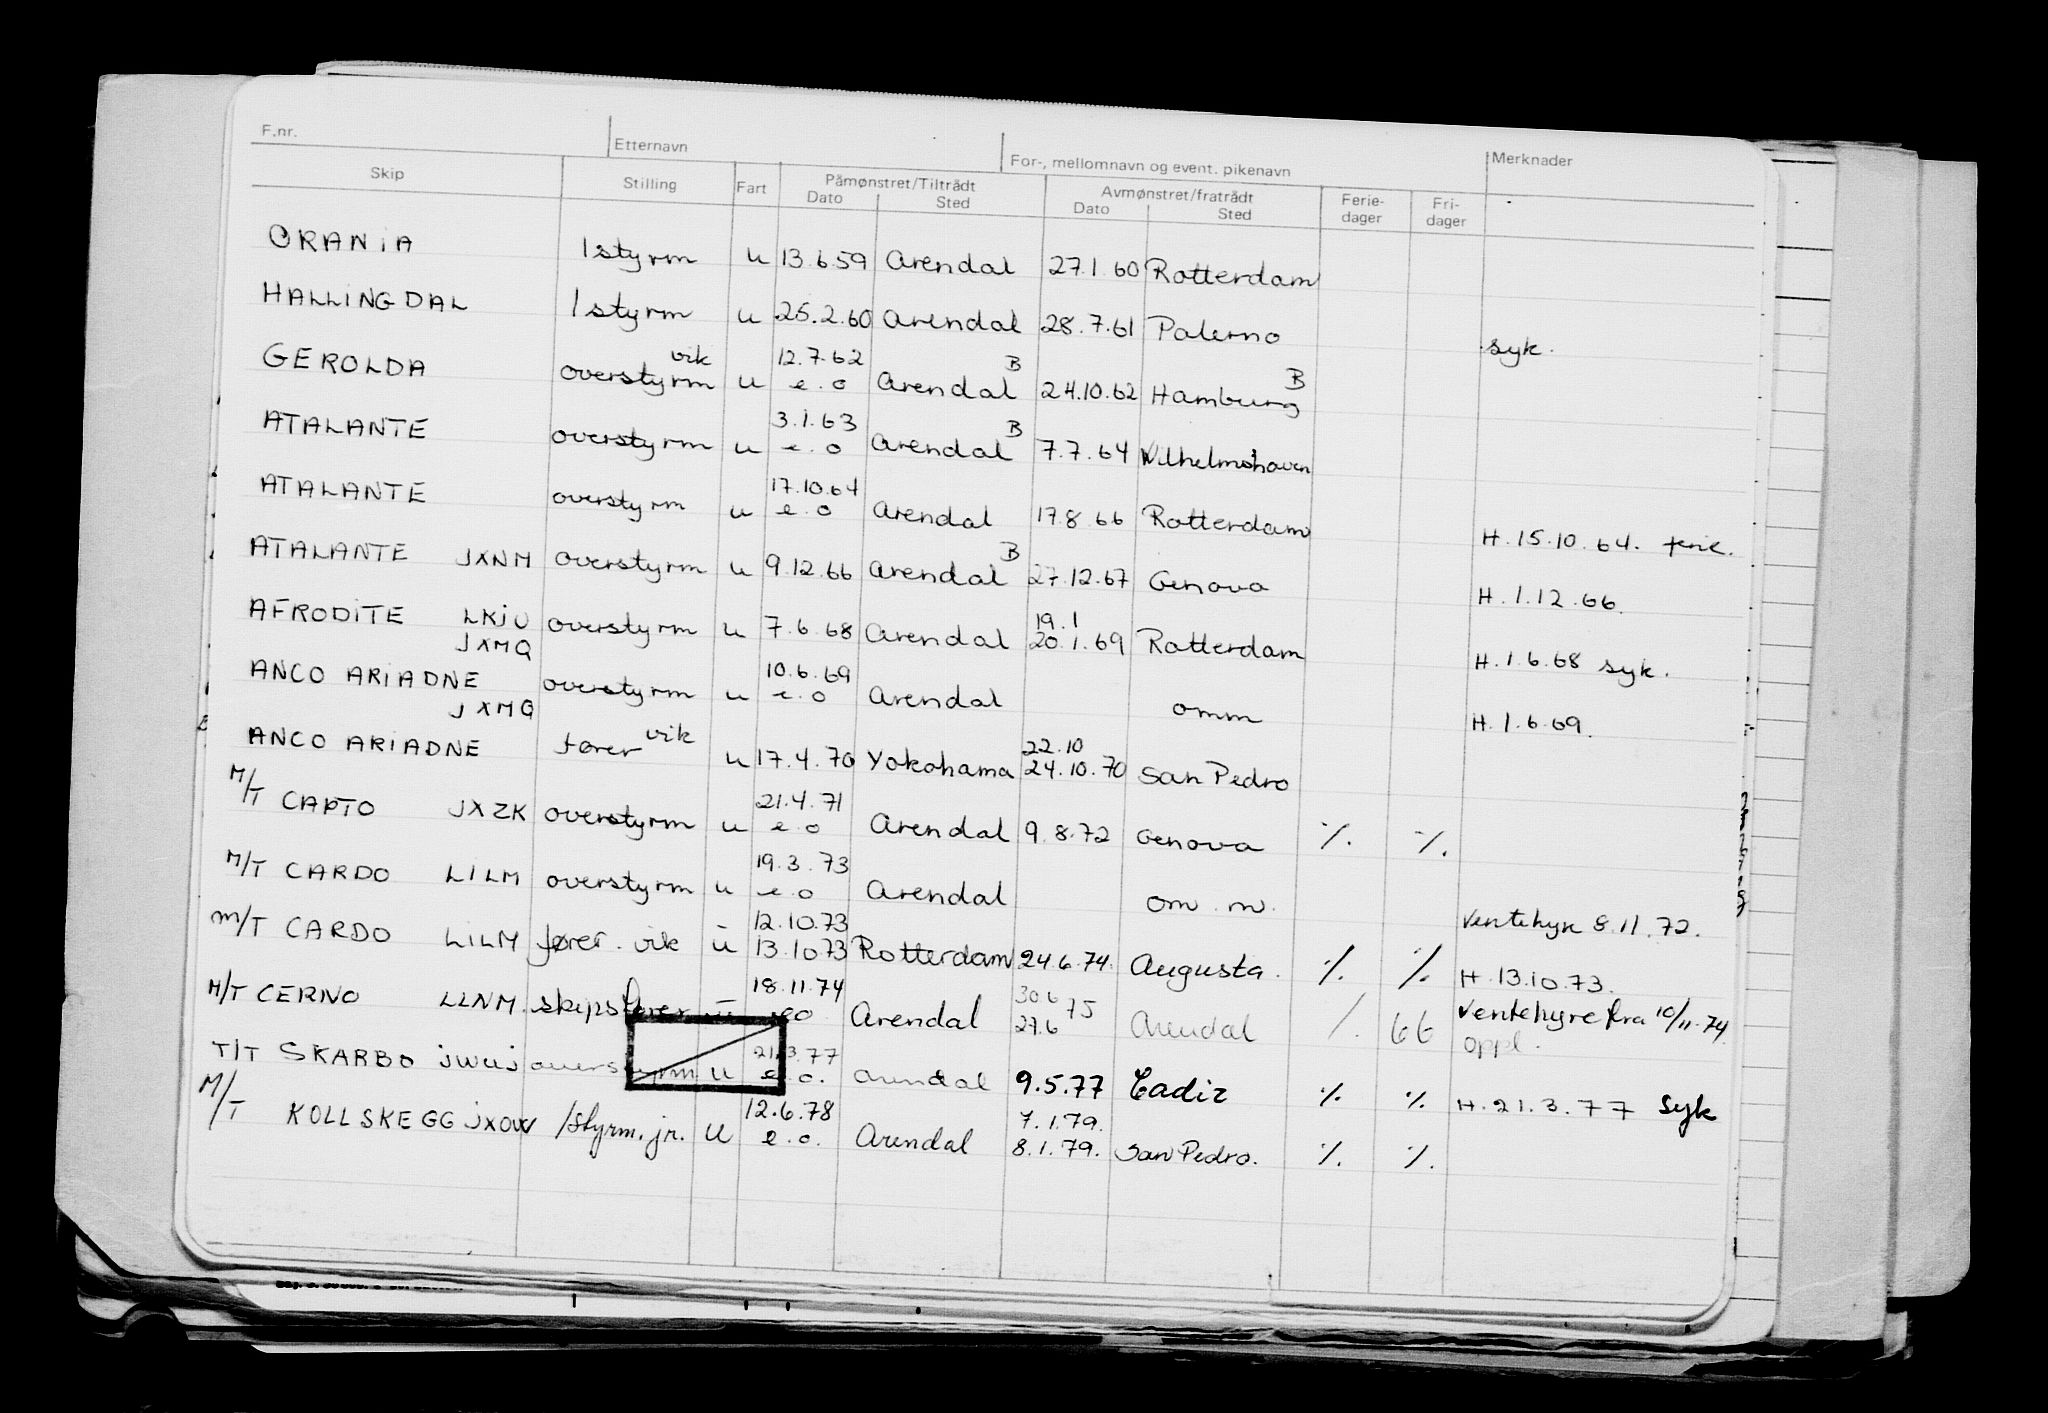 F.nr. Etternavn For-, mellomnavn og event. pikenavn Merknader
Skip Stilling Fart Påmønstret/Tiltrådt Avmønstret/fratrådt Ferie- Fri-
Dato Sted Dato Sted dager dager
ORANIA 1styrm u 13.6.59 Arendal 27.1.60 Rotterdam
HALLINGDAL 1styrm u 25.2.60 Arendal 28.7.61 Palerno syk.
vik 12.7.62 B B
GEROLDA overstyrm u e.o Arendal 24.10.62 Hamburg
3.1.63 B
ATALANTE overstyrm u e.o Arendal 7.7.64 Wilhelmshaven
17.10.64
ATALANTE overstyrm u e.o Arendal 17.8.66 Rotterdam H.15.10.64. ferie.
B
ATALANTE JXNM overstyrm u 9.12.66 Arendal 27.12.67 Genova H.1.12.66.
19.1
AFRODITE LKJU overstyrm u 7.6.68 Arendal 20.1.69 Rotterdam H.1.6.68 syk.
JXMQ 10.6.69
ANCO ARIADNE overstyrm u e.o Arendal omm H.1.6.69.
JXMQ
vik 22.10
ANCO ARIADNE fører u 17.4.70 Yokohama 24.10.70 San Pedro
21.4.71
M/T CAPTO JXZK overstyrm u e.o Arendal 9.8.72 Genova ·/. ·/.
19.3.73
M/T CARDO LILM overstyrm u e.o Arendal om.m. Ventehyre 8.11.72.
12.10.73
M/T CARDO LILM fører. vik u 13.10.73 Rotterdam 24.6.74. Augusta. ·/. ·/. H.13.10.73.
18.11.74 30.6
M/T CERNO LLNM. skipsfører u eo Arendal 27.6 75 Arendal /. 66 Ventehyre fra 10/11.74
oppl.
21.3.77
T/T SKARBO JWUJ overstyrm u e.o. Arendal 9.5.77 Cadiz ·/. ·/. H.21.3.77 Syk
12.6.78 7.1.79.
M/T KOLLSKEGG JXOW 1styrm.jr. u e.o. Arendal 8.1.79. San Pedro. ·/. ·/.